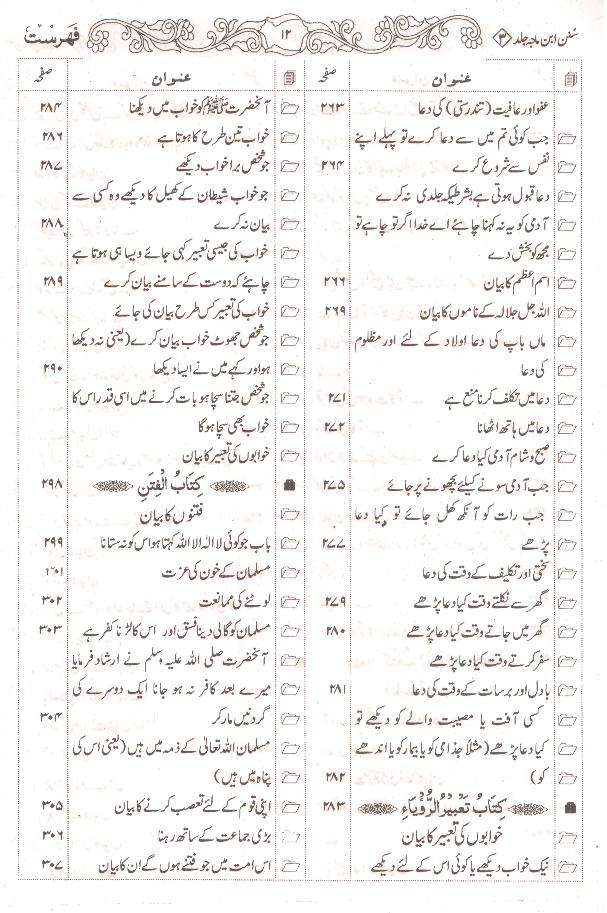 سُنن ابن ماجہ جلد ۳
۱۲
فہرست
عنوان صفحہ
عفو اور عافیت (تندرستی) کی دعا ۲۶۳
جب کوئی تم میں سے دعا کرے تو پہلے اپنے
نفس سے شروع کرے ۲۶۴
دعا قبول ہوتی ہے بشرطیکہ جلدی نہ کرے
آدمی کو یہ نہ کہنا چاہئے اے خدا اگر تو چاہے تو
مجھ کو بخش دے
اسم اعظم کا بیان ۲۶۶
اللہ جل جلالہ کے ناموں کا بیان ۲۶۹
ماں باپ کی دعا اولاد کے لئے اور مظلوم
کی دعا
دعا میں تکلف کرنا منع ہے ۲۷۱
دعا میں ہاتھ اٹھانا ۲۷۲
صبح و شام آدمی کیا دعا کرے
جب آدمی سونے کیلئے بچھونے پر جائے ۲۷۵
جب رات کو آنکھ کھل جائے تو کیا دعا
پڑھے ۲۷۷
سختی اور تکلیف کے وقت کی دعا
گھر سے نکلتے وقت کیا دعا پڑھے ۲۷۹
گھر میں جاتے وقت کیا دعا پڑھے ۲۸۰
سفر کرتے وقت کیا دعا پڑھے
بادل اور برسات کے وقت کی دعا ۲۸۱
کسی آفت یا مصیبت والے کو دیکھے تو
کیا دعا پڑھے (مثلاً جذامی کو یا بیمار کو یا اندھے
کو) ۲۸۲
کِتَابُ تَعبِیرُ الرُّؤیَاءِ ۲۸۳
خوابوں کی تعبیر کا بیان
نیک خواب دیکھے یا کوئی اس کے لئے دیکھے
عنوان صفحہ
آنحضرت ﷺ کو خواب میں دیکھنا ۲۸۴
خواب تین طرح کا ہوتا ہے ۲۸۶
جو شخص برا خواب دیکھے ۲۸۷
جو خواب شیطان کے کھیل کا دیکھے وہ کسی سے
بیان نہ کرے ۲۸۸
خواب کی جیسی تعبیر کہی جائے ویسا ہی ہوتا ہے
چاہئے کہ دوست کے سامنے بیان کرے ۲۸۹
خواب کی تعبیر کس طرح بیان کی جائے
جو شخص جھوٹ خواب بیان کرے (یعنی نہ دیکھا
ہو اور کہے میں نے ایسا دیکھا ۲۹۰
جو شخص جتنا سچا ہو بات کرنے میں اسی قدر اس کا
خواب بھی سچا ہوگا
خوابوں کی تعبیر کا بیان
کِتَابُ الْفِتَنِ ۲۹۸
فتنوں کا بیان
باب جو کوئی لا الہ الا اللہ کہتا ہو اس کو نہ ستانا ۲۹۹
مسلمان کے خون کی عزت ۳۰۱
لوٹنے کی ممانعت ۳۰۲
مسلمان کو گالی دینا فسق اور اس کا لڑنا کفر ہے ۳۰۳
آنحضرت صلی اللہ علیہ وسلم نے ارشاد فرمایا
میرے بعد کافر نہ ہو جانا ایک دوسرے کی
گردنیں مار کر ۳۰۴
مسلمان اللہ تعالیٰ کے ذمہ میں ہیں (یعنی اس کی
پناہ میں ہیں)
اپنی قوم کے لئے تعصب کرنے کا بیان ۳۰۵
بڑی جماعت کے ساتھ رہنا ۳۰۶
اس امت میں جو فتنے ہوں گے ان کا بیان ۳۰۷